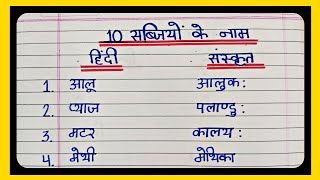 10 सब्जियों के नाम
हिंदी संस्कृत
1. आलू आलुक:
2. प्याज पलाण्डु:
3. मटर कालय:
4. मेथी मेथिका